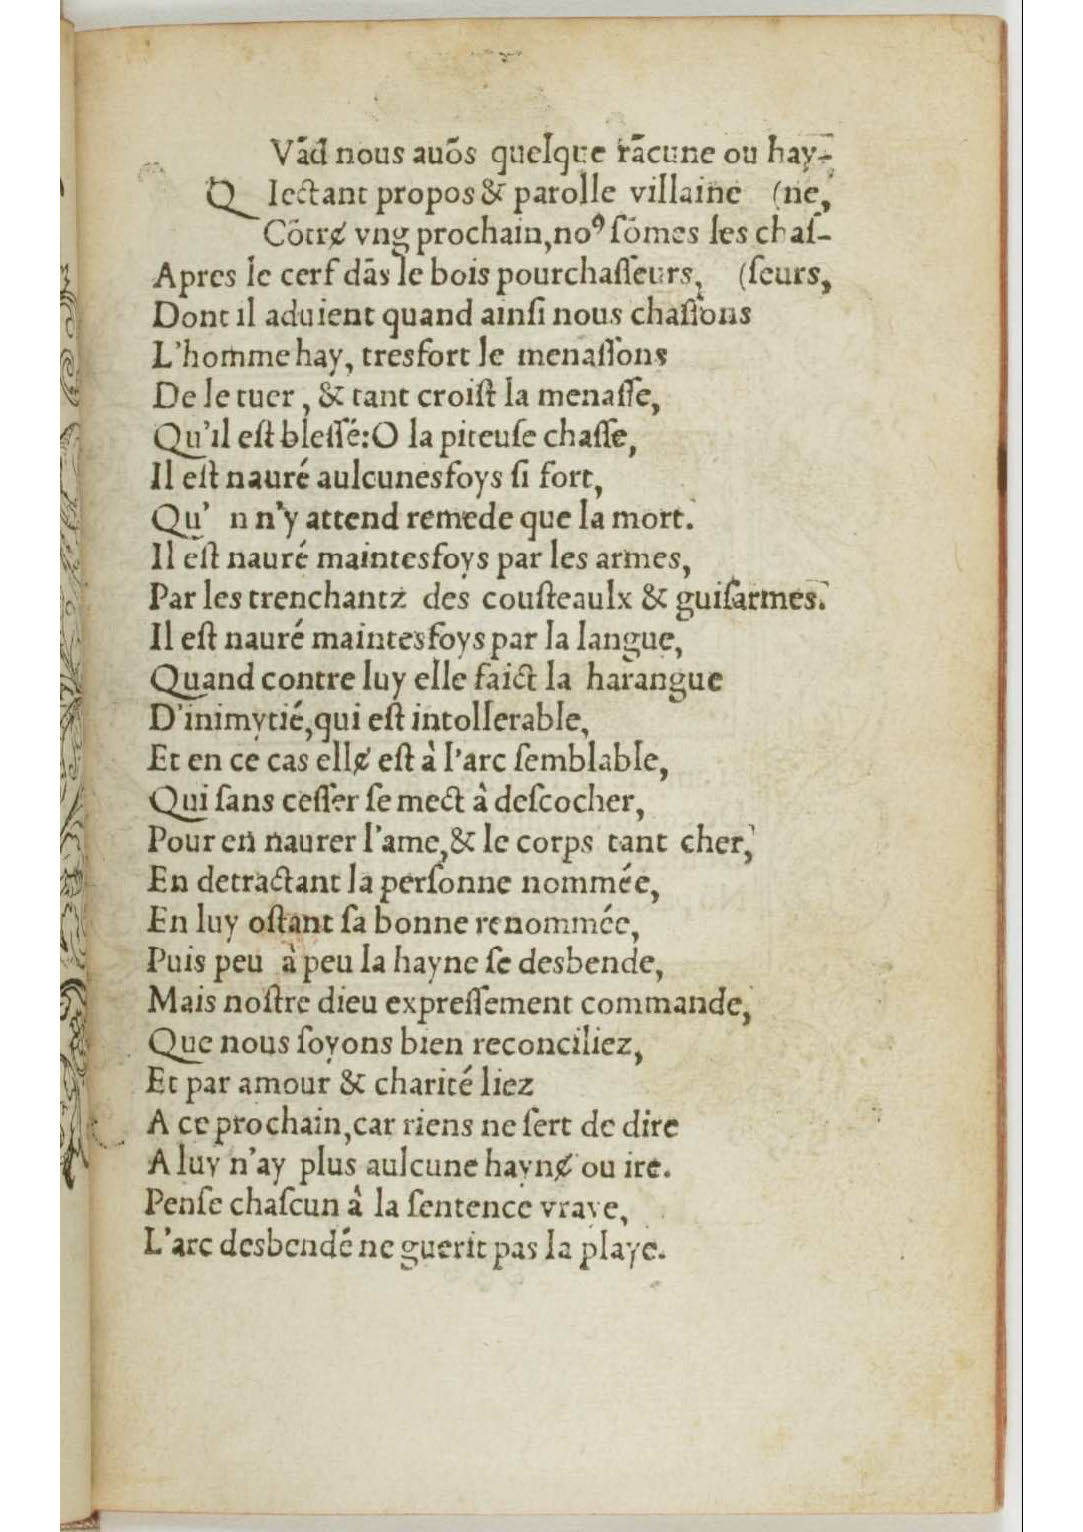 Vãd nous auõs quelque rãcune ou hay-
Q Iectant propos & parolle villaine (ne,
Cõtrɇ vng prochain,noꝰ sõmes les chaſ-
Apres le cerf dãs le bois pourchaſſeurs, (ſeurs,
Dont il aduient quand ainſi nous chaſſons
L'homme hay, tresfort le menaſſons
De le tuer, & tant croiſt la menaſſe,
Qu'il eſt bleſſé:O la piteuſe chaſſe,
Il eſt nauré aulcunesfoys ſi fort,
Qu' n n'y attend remede que la mort.
Il eſt nauré maintesfoys par les armes,
Par les trenchantz des couſteaulx & guiſarmes.
Il eſt nauré maintesfoys par la langue,
Quand contre luy elle faict la harangue
D'inimytié,qui eſt intollerable,
Et en ce cas ellɇ eſt à l'arc ſemblable,
Qui ſans ceſſer ſe mect à deſcocher,
Pour en naurer l'ame,& le corps tant cher,
En detractant la perſonne nommée,
En luy oſtant ſa bonne renommée,
Puis peu à peu la hayne ſe desbende,
Mais noſtre dieu expreſſement commande,
Que nous ſoyons bien reconciliez,
Et par amour & charité liez
A ce prochain,car riens ne ſert de dire
A luy n'ay plus aulcune haynɇ ou ire.
Penſe chaſcun à la ſentence vraye,
L'arc desbendé ne guerit pas la playe.